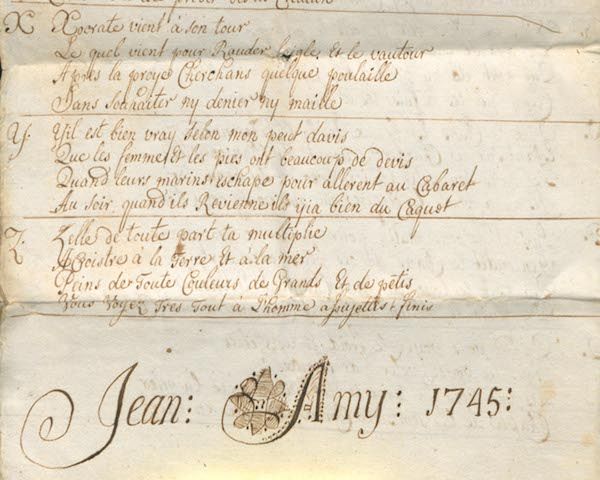 X Xporate vient à son tour
Le quel vient pour Rauder laigle, et le vautour
Apres la proye Cherchans quelque poulaille
Sans souhaiter ny denier ny maille
Y: Yil est bien vray selon mon petit davis
Que les femme, Et les pies ont beaucoup de devis
Quand leurs marins eschape pour allerent au Cabaret
Au soir quand ils Revienne ils yia bien du Caquet
Z. Zelle de toute part ta multiplie
Acroistre a la Terre et a la mer
Peins de Toute Couleurs de Grands Et de petis
Vous Voyez Tres Tout à L'homme assujettis + finis
Jean: Amy: 1745: